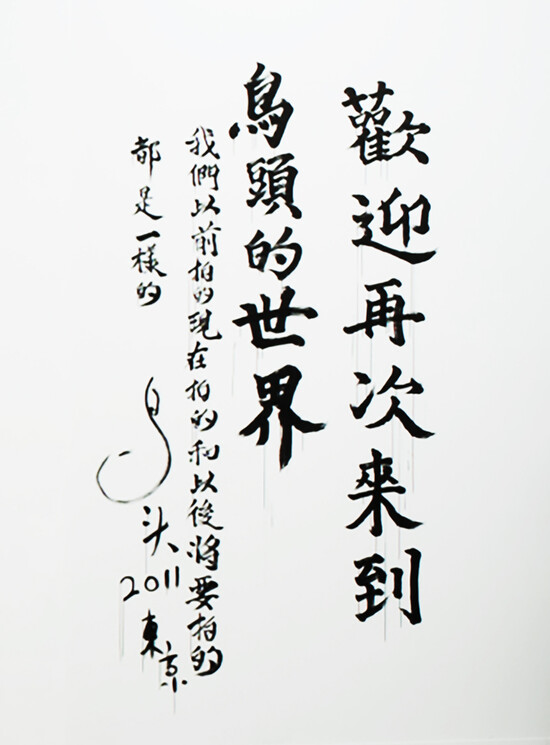 歡迎再次來到
鳥頭的世界
我們以前拍的現在拍的和以後將要拍的
都是一樣的
鸟头
2011
東京